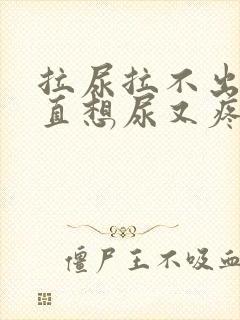 拉尿拉不出
直想尿又疼
僵尸王不吸血